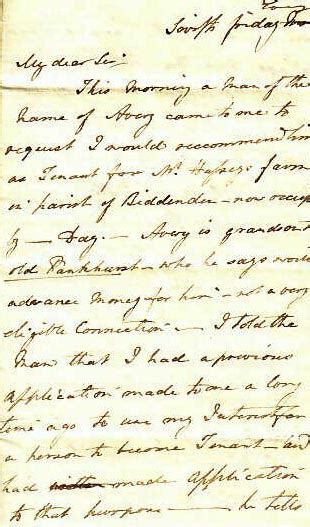 friday
My dear Sir
This Morning a Man of the
Name of Avery came to me to
request I would reccommend him
as Tenant for Mr. Hussey's farm
in parish of Biddenden - now occup
by — Day. — Avery is grandson
old Pankhurst - who he says would
advance Money for him - not a very
eligible Connection — I told the
Man that I had a previous
application made to me a long
time ago to use my Interest for
a person to become Tenant - and
had made Application
to that purpose — he tells